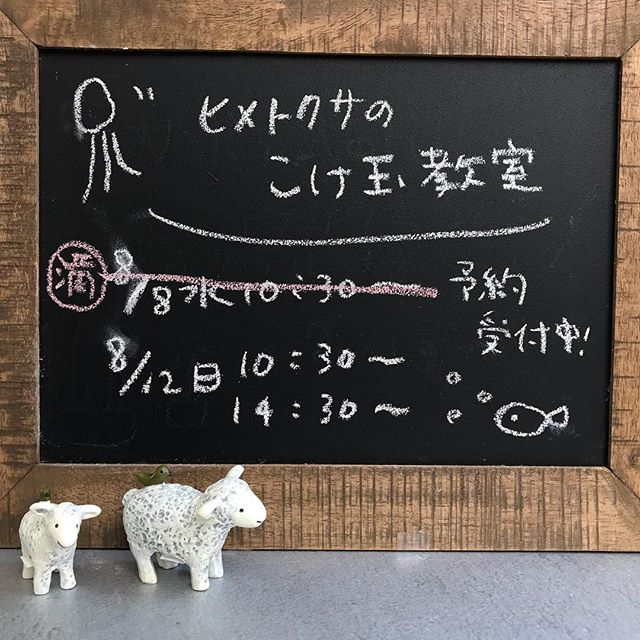 ヒメトクサの
こけ玉教室
満 8/8水 10:30〜
予約
受付中!
8/12日 10:30〜
14:30〜